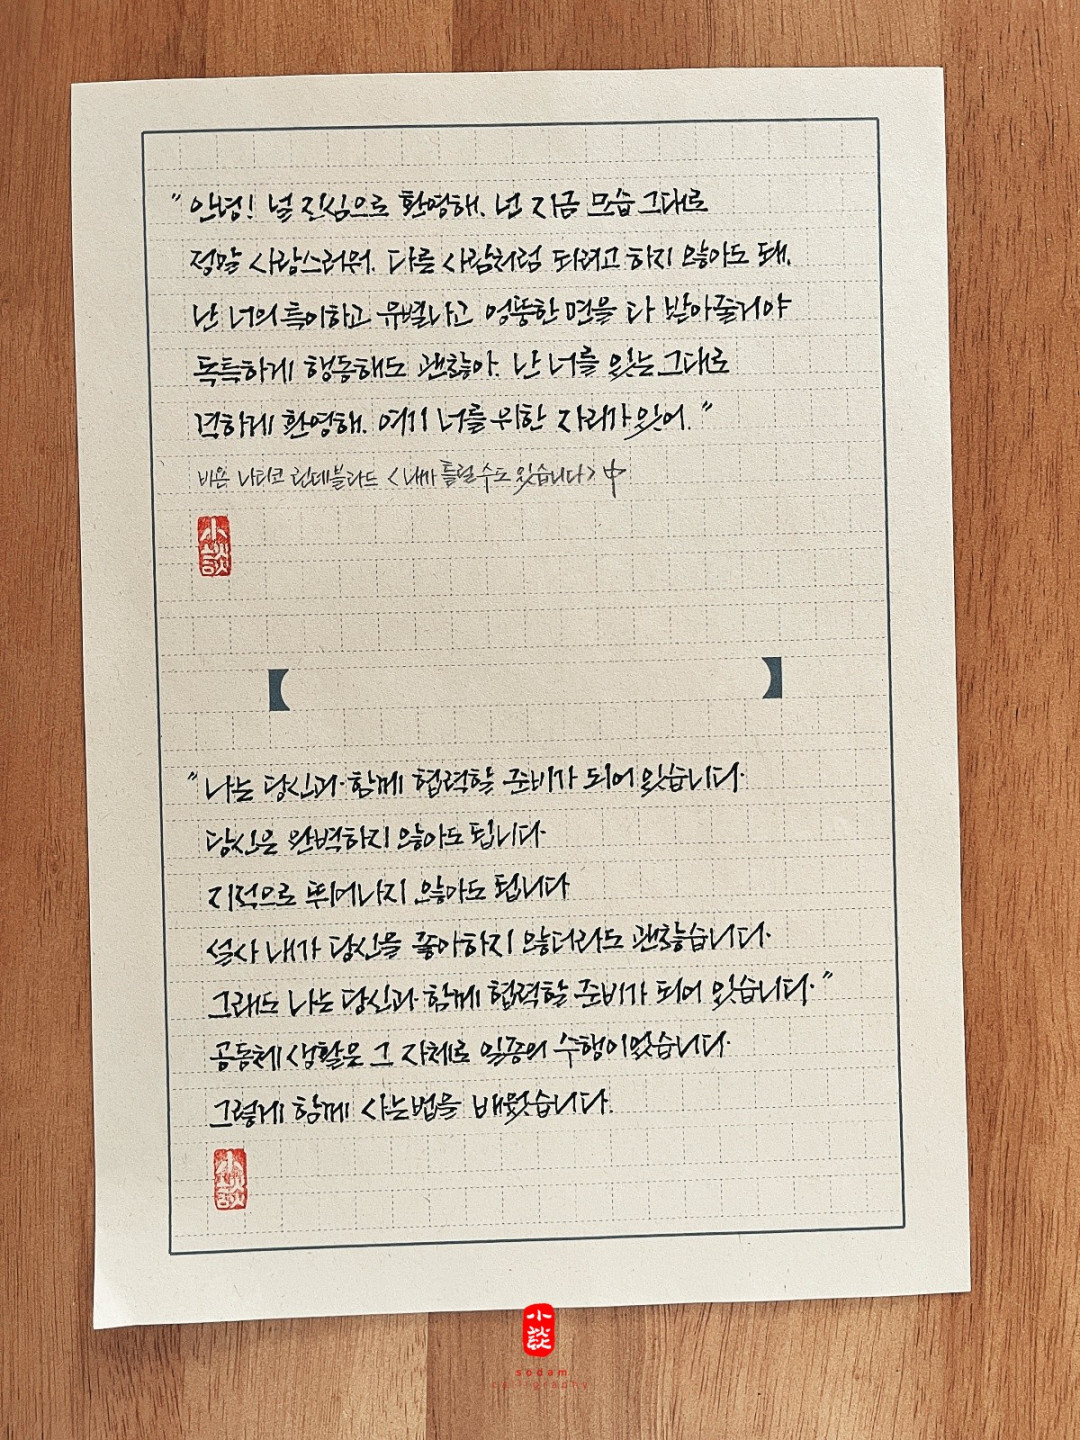 "안녕! 널 진심으로 환영해. 넌 지금 모습 그대로
정말 사랑스러워. 다른 사람처럼 되려고 하지 않아도 돼.
난 너의 특이하고 유별나고 엉뚱한 면을 다 받아줄거야
독특하게 행동해도 괜찮아. 난 너를 있는 그대로
격하게 환영해. 여기 너를 위한 자리가 있어."
비욘 나티코 린데블라드 <내가 틀릴 수도 있습니다> 中
小談
"나는 당신과 함께 협력할 준비가 되어 있습니다.
당신은 완벽하지 않아도 됩니다.
지적으로 뛰어나지 않아도 됩니다
설사 내가 당신을 좋아하지 않더라도 괜찮습니다.
그래도 나는 당신과 함께 협력할 준비가 되어 있습니다."
공동체 생활은 그 자체로 일종의 수행이었습니다.
그렇게 함께 사는 법을 배웠습니다.
小談
小談
sodam
calligraphy